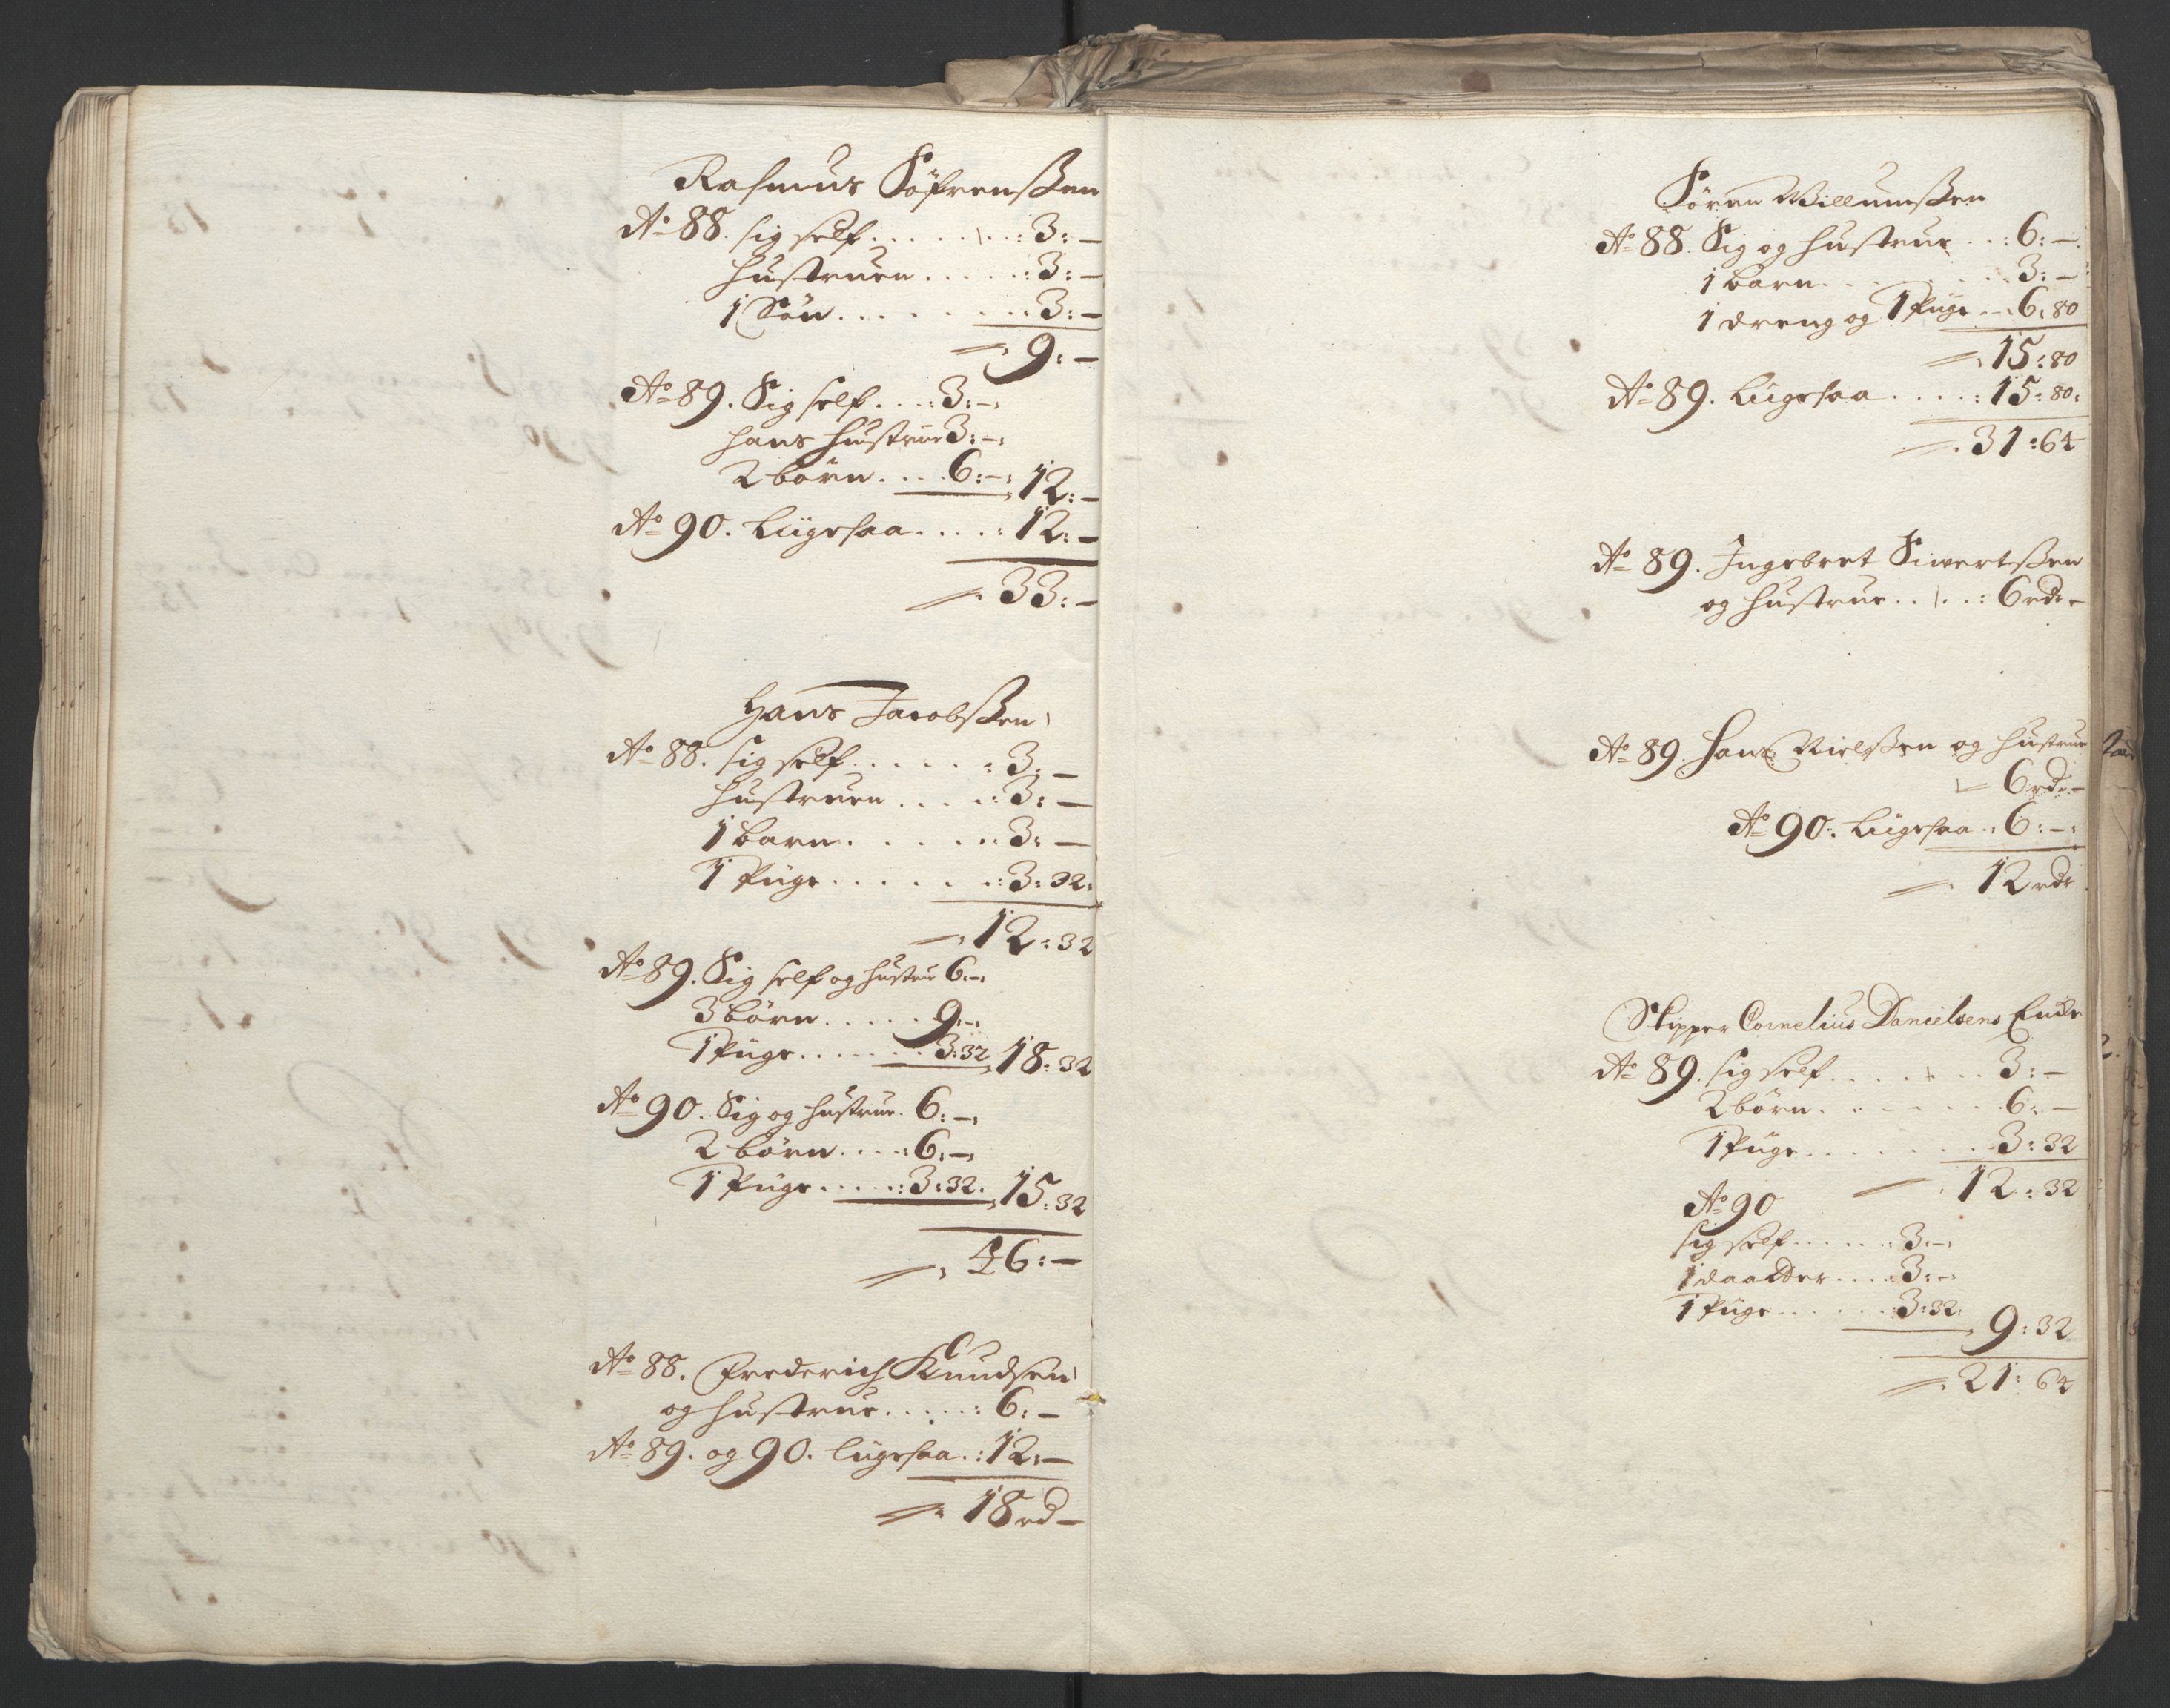 Rasmus Söfrensßen
Ao 88. sig self . . . . . : 3: —
hustruen . . . . . : 3: —
1 Sön . . . . . . . 3: —
9: —
Ao 89. Sig self . . . : 3: —
hans hustrue 3: —
2 börn . . . . 6: — 12: —
Ao 90. liigesaa . . . . : 12: —
33: —
Hans Jacobsßen
Ao 88. sig self . . . . . : 3: —
hustruen . . . . : 3: —
1 barn . . . . . : 3: —
1 Piige . . . . . . : 3: 32:
12: 32
Ao 89. Sig self og hustrue 6: —
3 börn . . . . . 9: —
1 Piige . . . . . . 3: 32 18: 32
Ao 90. Sig og hustrue. 6: —
2 börn . . . . : 6: —
1 Piige . . . . . : 3: 32. 15: 32
46: —
Ao 88. Frederich Knudsen
og hustrue . . . . . : 6: —
Ao 89. og 90. liigesaa . : 12: —
18 rd —
Sören Willumsßen
Ao 88. Sig og hustrue . . : 6: —
1 barn . . . . . . 3: —
1 dreng og 1 Piige . . 6: 80
15: 80
Ao 89. liigesaa . . . . : 15: 80:
31: 64
Ao 89. Ingebret Siwertsßen
og hustrue . . . . : 6 rd: —
Ao 89. Hans Nielsßen og hustrue
6 rd: —
Ao 90. liigesaa . : 6: —
12 rdr
Skipper Cornelius Danielsens Encke
Ao 89. sig self . . . . . . 3: —
2 börn . . . . . . . 6: —
1 Piige . . . . . . . 3: 32
12: 32
Ao 90
sig self . . . . . : 3: —
1 daatter . . . . 3: —
1 Piige . . . . . . 3: 32. 9: 32
21: 64